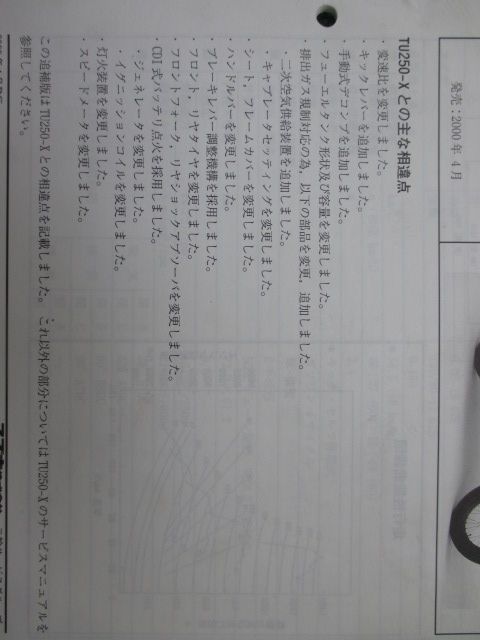 発売：2000 年 4 月
TU250-X との主な相違点
・変速比を変更しました。
・キックレバーを追加しました。
・手動式デコンプを追加しました。
・フューエルタンク形状及び容量を変更しました。
・排出ガス規制対応の為，以下の部品を変更，追加しました。
・二次空気供給装置を追加しました。
・キャブレータセッティングを変更しました。
・シート，フレームカバーを変更しました。
・ハンドルバーを変更しました。
・ブレーキレバー調整機構を採用しました。
・フロント，リヤタイヤを変更しました。
・フロントフォーク，リヤショックアブソーバを変更しました。
・CDI 式バッテリ点火を採用しました。
・ジェネレータを変更しました。
・イグニッションコイルを変更しました。
・灯火装置を変更しました。
・スピードメータを変更しました。
この追補版は TU250-X との相違点を記載しました。これ以外の部分については TU250-X のサービスマニュアルを
参照してください。